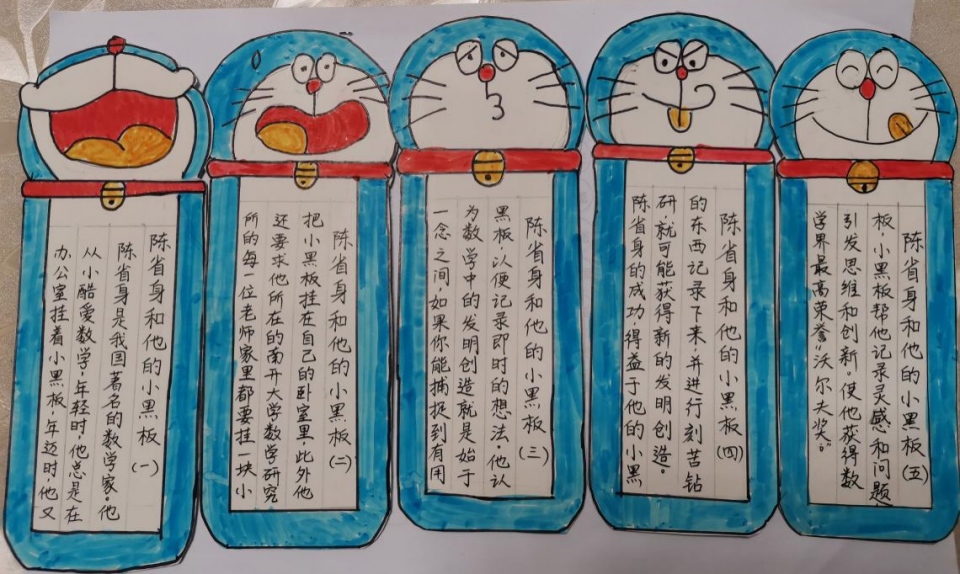 陈省身和他的小黑板(一)
陈省身是我国著名的数学家。他
从小酷爱数学,年轻时,他总是在
办公室挂着小黑板,年迈时,他又
陈省身和他的小黑板(二)
把小黑板挂在自己的卧室里,此外他
还要求他所在的南开大学数学研究
所的每一位老师家里都要挂一块小
陈省身和他的小黑板(三)
黑板,以便记录即时的想法。他认
为数学中的发明创造就是始于
一念之间,如果你能捕捉到有用
陈省身和他的小黑板(四)
的东西记录下来,并进行刻苦钻
研,就可能获得新的发明创造。
陈省身的成功,得益于他的小黑
陈省身和他的小黑板(五)
板,小黑板帮他记录灵感和问题,
引发思维和创新。使他获得数
学界最高荣誉“沃尔夫奖”。